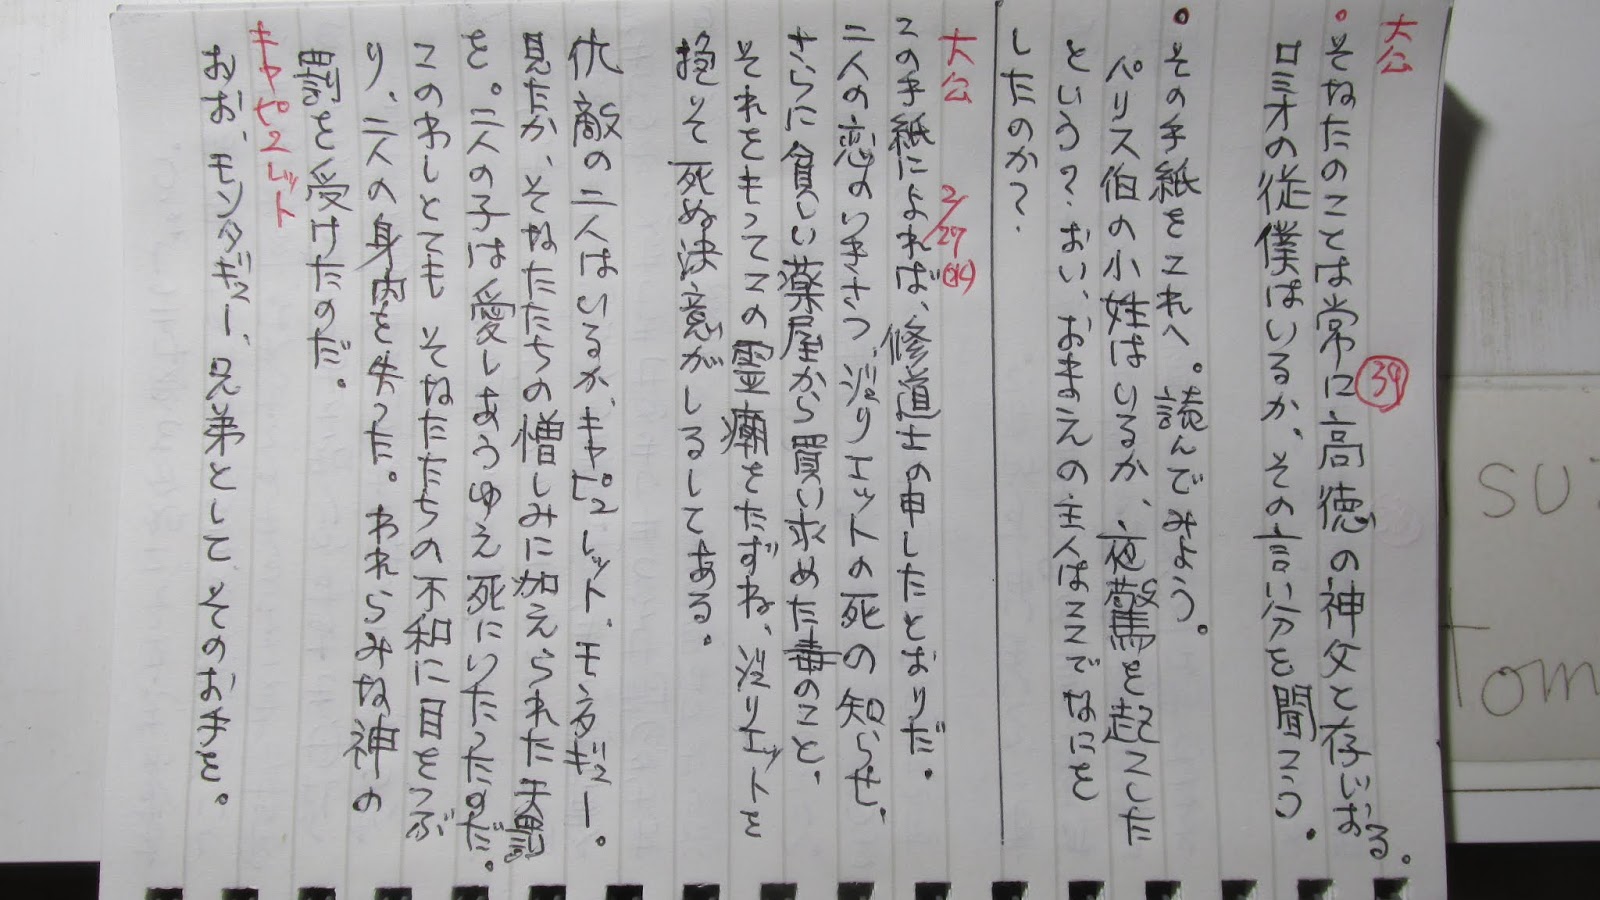 大公
㊴
・そなたのことは常に高徳の神父と存じおる。
ロミオの従僕はいるか、その言い分を聞こう。
・その手紙をこれへ。読んでみよう。
パリス伯の小姓はいるか、夜警を起こした
という？おい、おまえの主人はここでなにを
したのか？
大公 2/27(水)
この手紙によれば、修道士の申したとおりだ。
二人の恋のいきさつ、ジュリエットの死の知らせ、
さらに貧しい薬屋から買い求めた毒のこと、
それをもってこの霊廟をたずね、ジュリエットと
抱そ死ぬ決意がしるしてある。
仇敵の二人はいるか、キャピュレット、モンタギュー。
見たか、そなたたちの憎しみに加えられた天罰
を。二人の子は愛しあうゆえ死にいたったのだ。
このわしとても そなたたちの不和に目をつぶ
り、二人の身内を失った。われらみな神の
罰を受けたのだ。
キャピュレット
おお、モンタギュー、兄弟として そのお手を。
SU
Tom